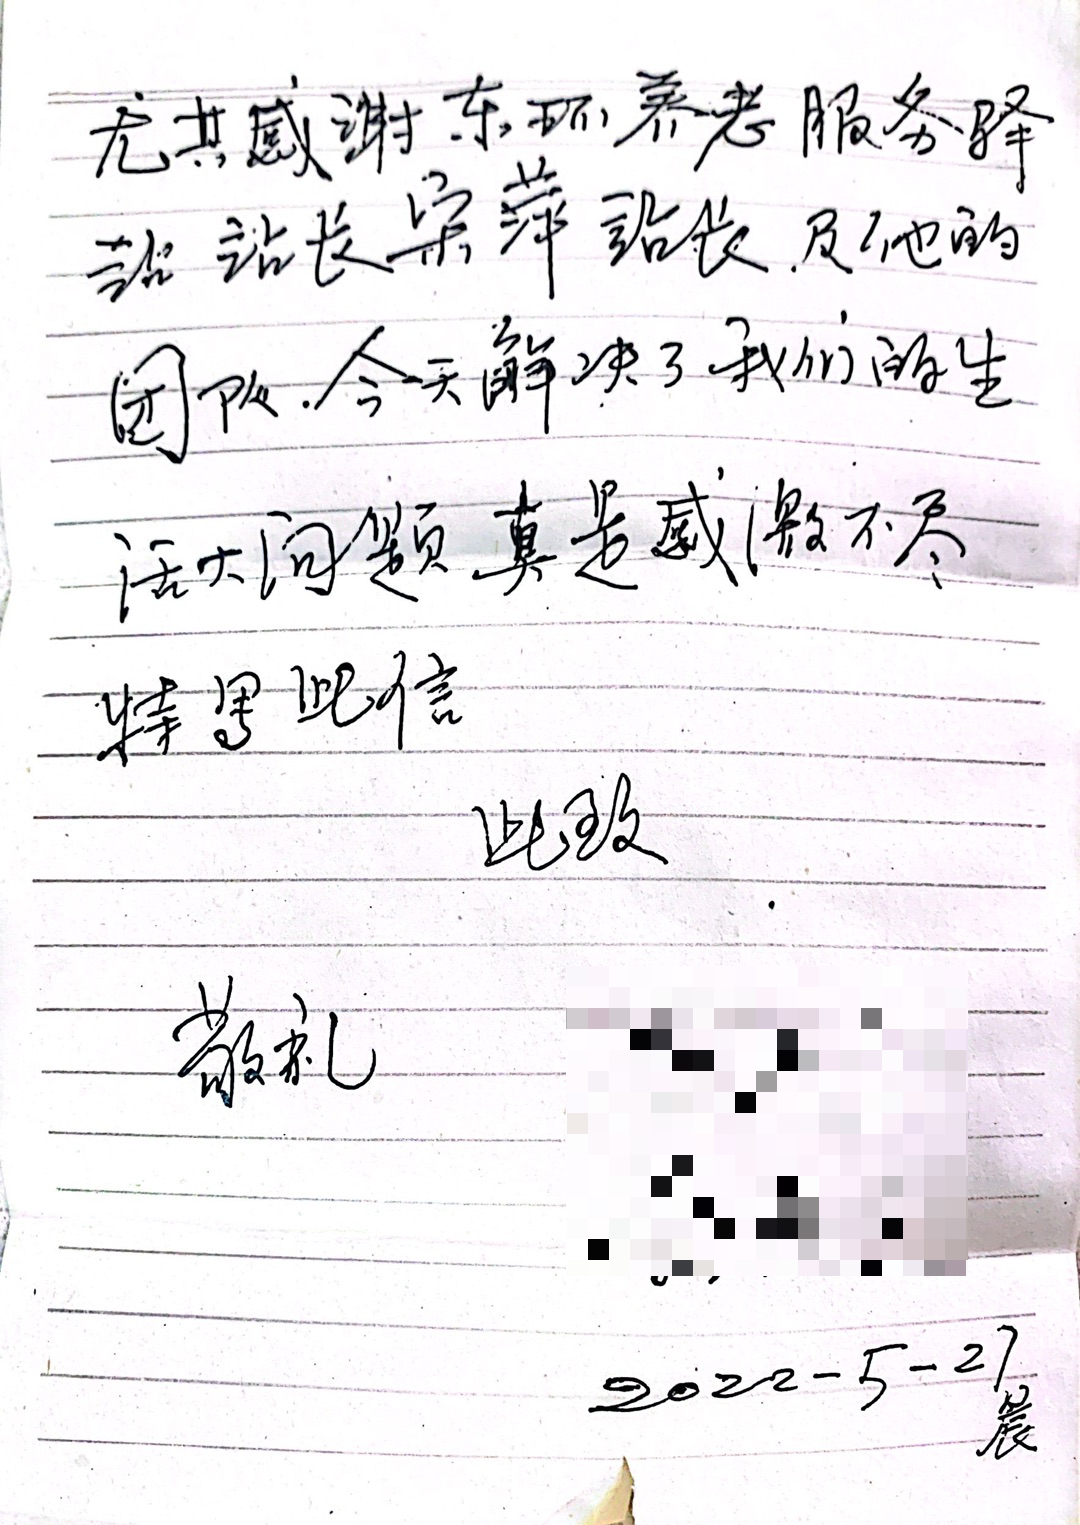 尤其感谢东环养老服务驿
站站长宋萍站长及他的
团队.今天解决了我们的生
活大问题真是感激不尽
特写此信
此致
敬礼
2022-5-27
晨